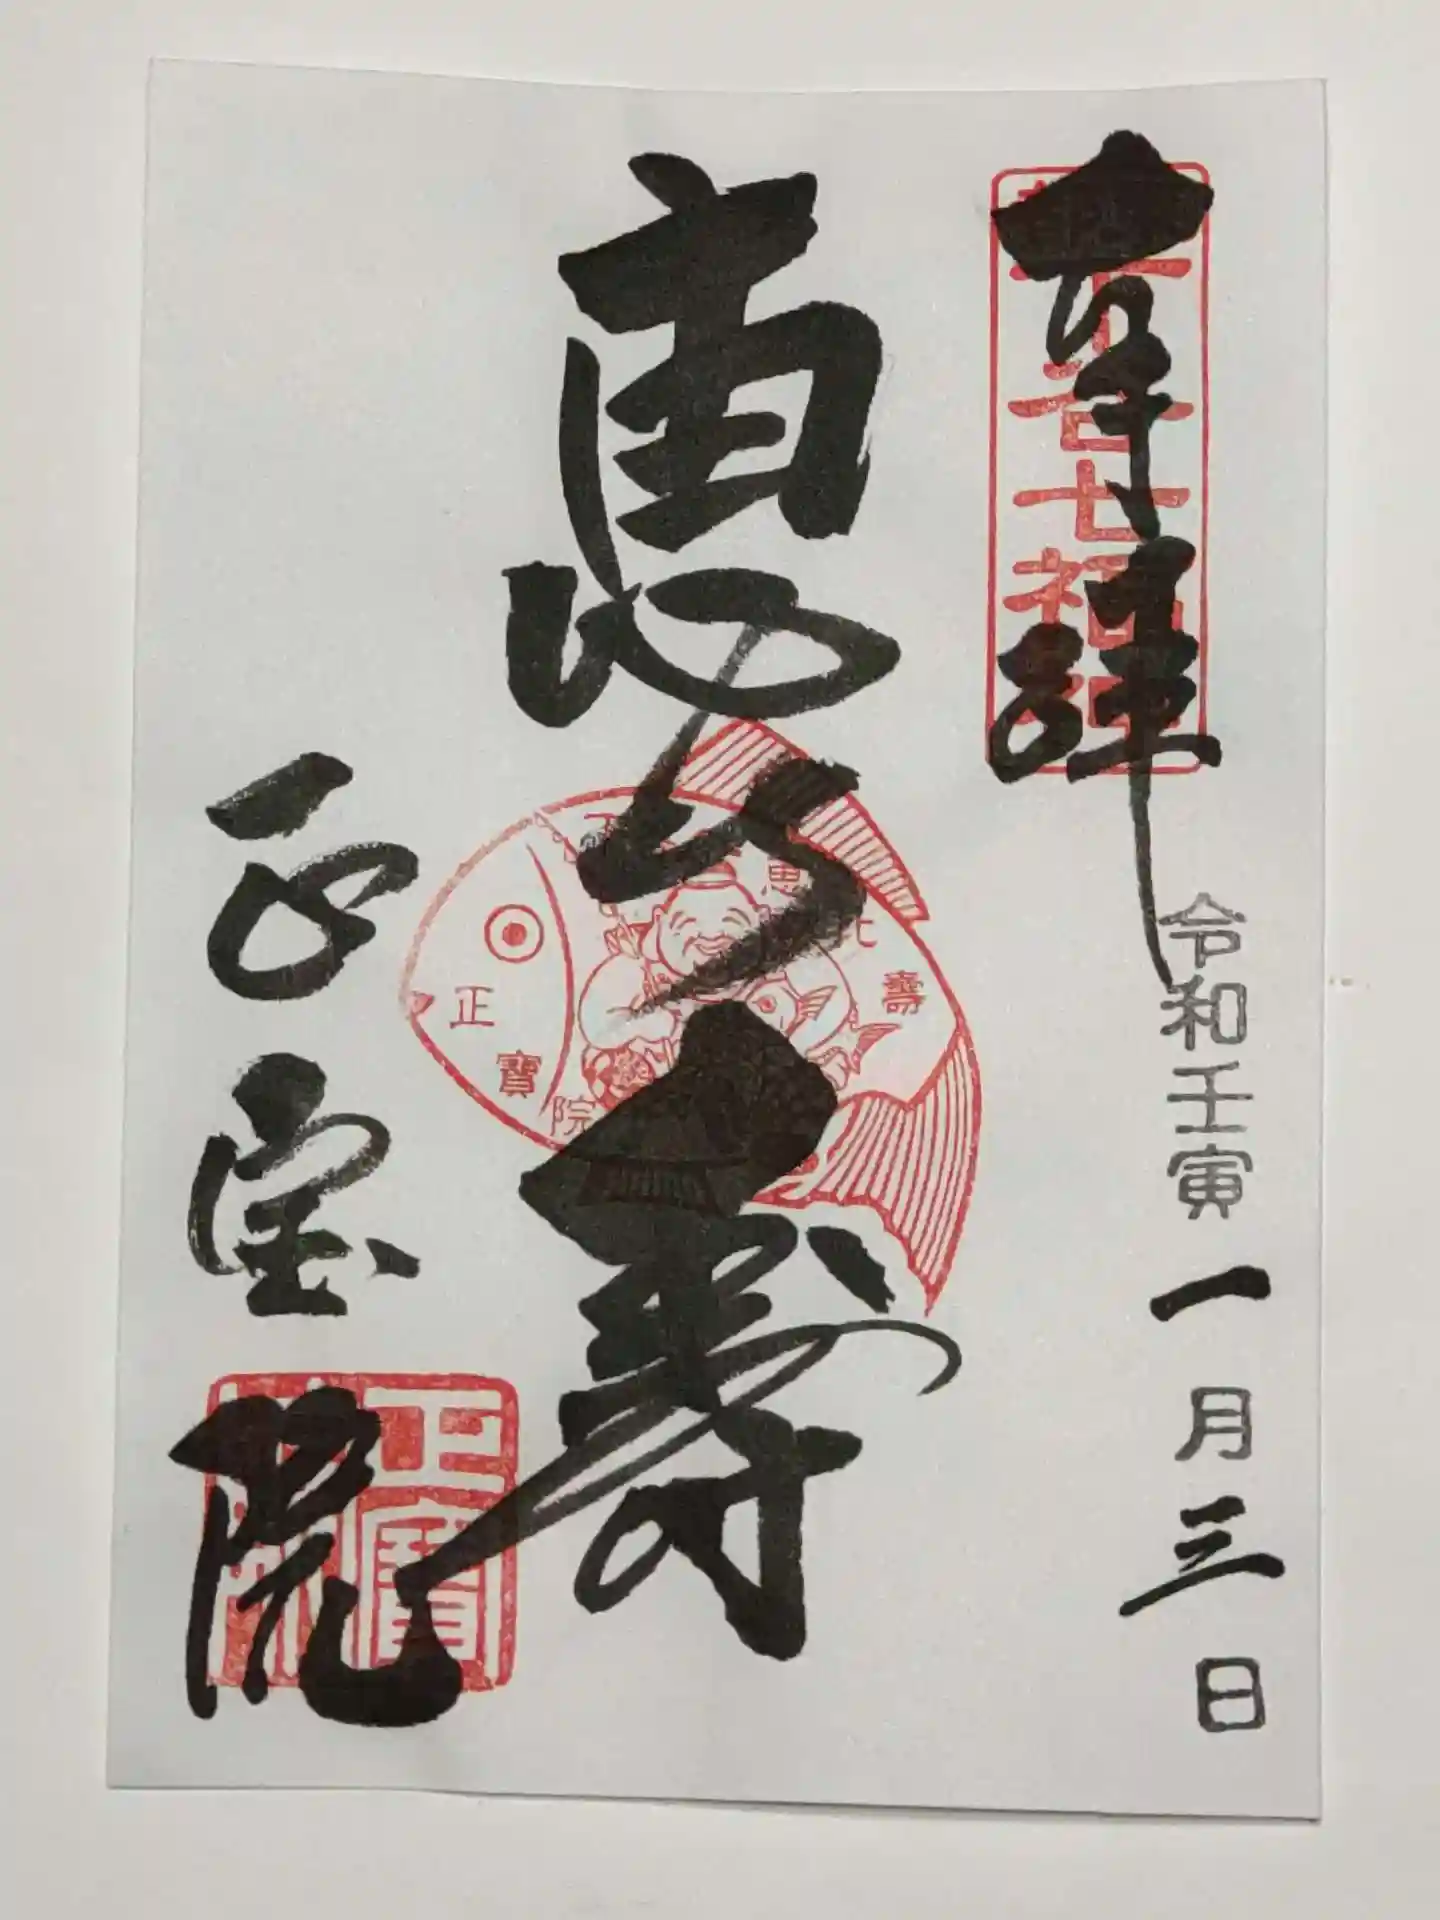 奉拝
七福
令和壬寅一月三日
恵比寿
恵比壽
正寶院
正宝院
正寶